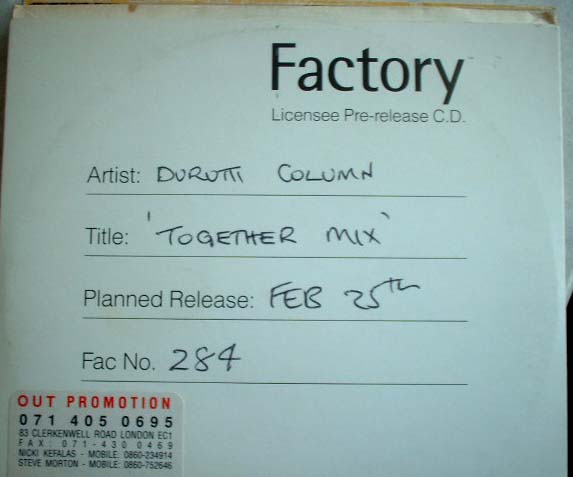 Factory
Licensee Pre-release C.D.
Artist: DURUTTI COLUMN
Title: 'TOGETHER MIX'
Planned Release: FEB 25th
Fac No. 284
OUT PROMOTION
071 405 0695
83 CLERKENWELL ROAD LONDON EC1
FAX: 071-430 0469
NICKI KEFALAS - MOBILE: 0860-234914
STEVE MORTON - MOBILE: 0860-752646